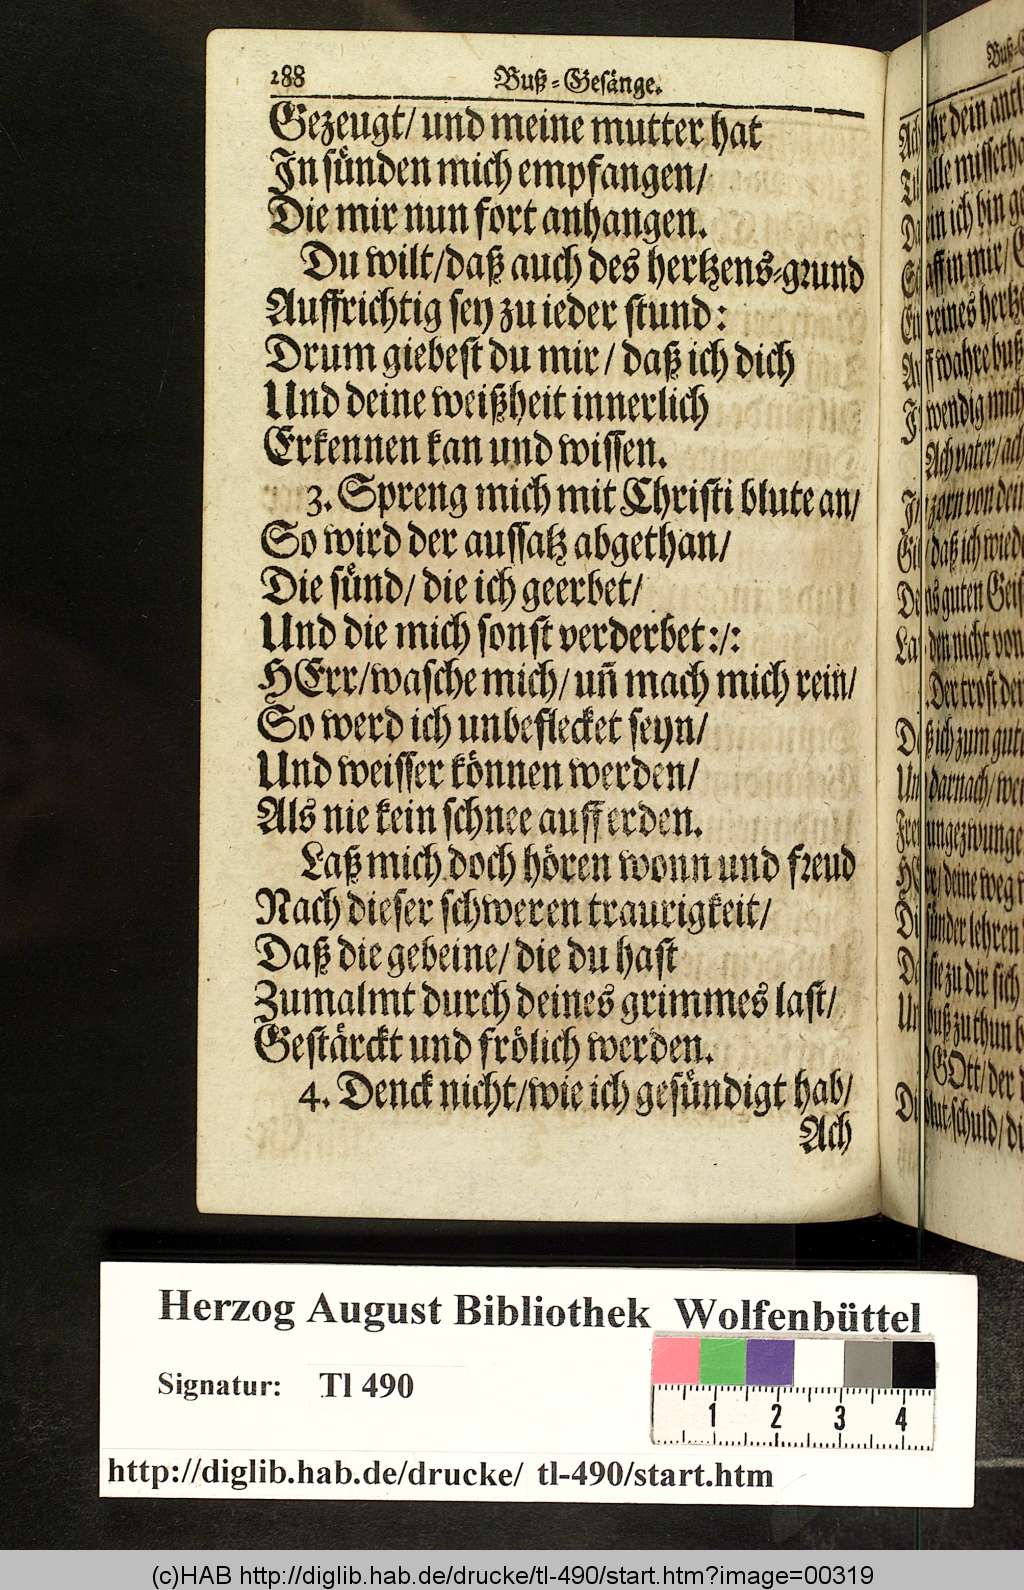 288 Buß-Gesänge.
Gezeugt/ und meine mutter hat
In sünden mich empfangen/
Die mir nun fort anhangen.
Du wilt/daß auch des hertzens-grund
Auffrichtig sey zu ieder stund:
Drum giebest du mir/ daß ich dich
Und deine weißheit innerlich
Erkennen kan und wissen.
3. Spreng mich mit Christi blute an/
So wird der aussatz abgethan/
Die sünd/ die ich geerbet/
Und die mich sonst verderbet:/:
HErr/wasche mich/ uñ mach mich rein/
So werd ich unbeflecket seyn/
Und weisser können werden/
Als nie kein schnee auff erden.
Laß mich doch hören wonn und freud
Nach dieser schweren traurigkeit/
Daß die gebeine/ die du hast
Zumalmt durch deines grimmes last/
Gestärckt und frölich werden.
4. Denck nicht/wie ich gesündigt hab/
Ach
dein
alle
ich bin
in mir/
reines
wahre
wendig mich
Ach vater/
zorn von
daß ich
guten
nicht von
Der trost
ich zum
darnach/
ungezwunge
deine weg
sünder lehren
sie zu dir sich
buß zu thun
GOtt/ der
blut-schuld/
Herzog August Bibliothek Wolfenbüttel
Signatur: Tl 490
1 2 3 4
http://diglib.hab.de/drucke/ tl-490/start.htm
(c)HAB http://diglib.hab.de/drucke/tl-490/start.htm?image=00319